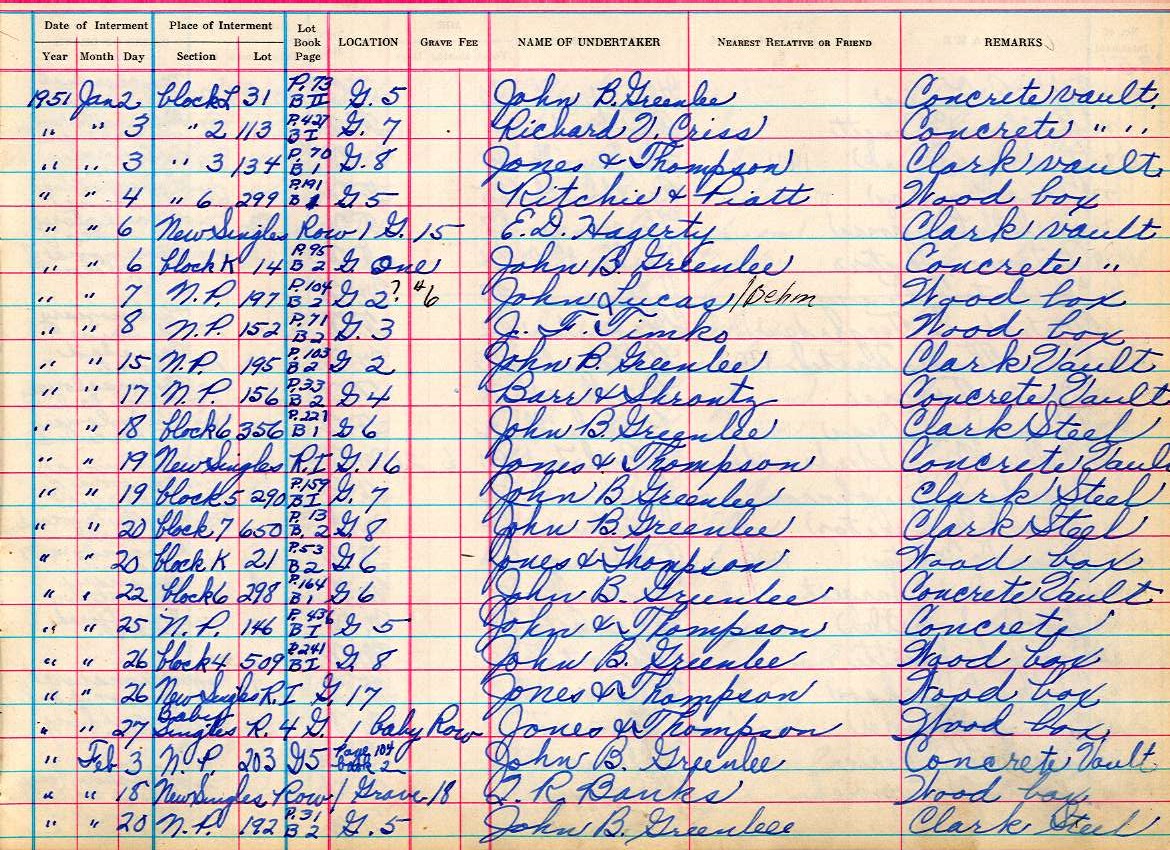 Date of Interment Place of Interment Lot Book Page LOCATION GRAVE FEE NAME OF UNDERTAKER NEAREST RELATIVE OR FRIEND REMARKS
Year Month Day Section Lot
1951 Jan 2 block L 31 P. 73 B II G. 5 John B. Greenlee Concrete vault
" " 3 " 2 113 P. 427 B I G. 7 Richard V. Criss Concrete " "
" " 3 " 3 134 P. 70 B 1 G. 8 Jones & Thompson Clark vault
" " 4 " 6 299 P. 191 B 1 G 5 Ritchie & Piatt Wood box
" " 6 New Singles Row 1 G. 15 E. D. Hagerty Clark vault
" " 6 block K 14 P. 95 B 2 G One John B. Greenlee Concrete "
" " 7 N. P. 197 P. 104 B 2 G 2? #6 John Lucas / Behm Wood box
" " 8 N. P. 152 P. 71 B 2 G. 3 J. F. Timko Wood box
" " 15 N. P. 195 P. 103 B 2 G 2 John B. Greenlee Clark Vault
" " 17 N. P. 156 P. 33 B 2 G 4 Barr & Shrontz Concrete Vault
" " 18 block 6 356 B 1 G 6 John B. Greenlee Clark Steel
" " 19 New Singles R. I G. 16 Jones & Thompson Concrete Vault
" " 19 block 5 290 P. 159 B I G. 7 John B Greenlee Clark Steel
" " 20 block 7 650 P. 13 B. 2 G. 8 John B. Greenlee Clark Steel
" " 20 block K 21 P. 53 B 2 G 6 Jones & Thompson Wood box
" " 22 block 6 298 P. 164 B 1 G 6 John B. Greenlee Concrete Vault
" " 25 N. P. 146 P. 436 B I G 5 John & Thompson Concrete
" " 26 block 4 509 P. 241 B I G. 8 John B. Greenlee Wood box
" " 26 New Singles R. I G. 17 Jones & Thompson Wood box
" " 27 Baby Singles R. 4 G. 1 baby Row Jones & Thompson Wood box
" Feb 3 N. P. 203 G 5 Page 104 book 2 John B. Greenlee Concrete Vault
" " 18 New Singles Row 1 Grave 18 R Banks Wood box
" " 20 N. P. 192 P. 31 B 2 G. 5 John B. Greenlee Clark Steel